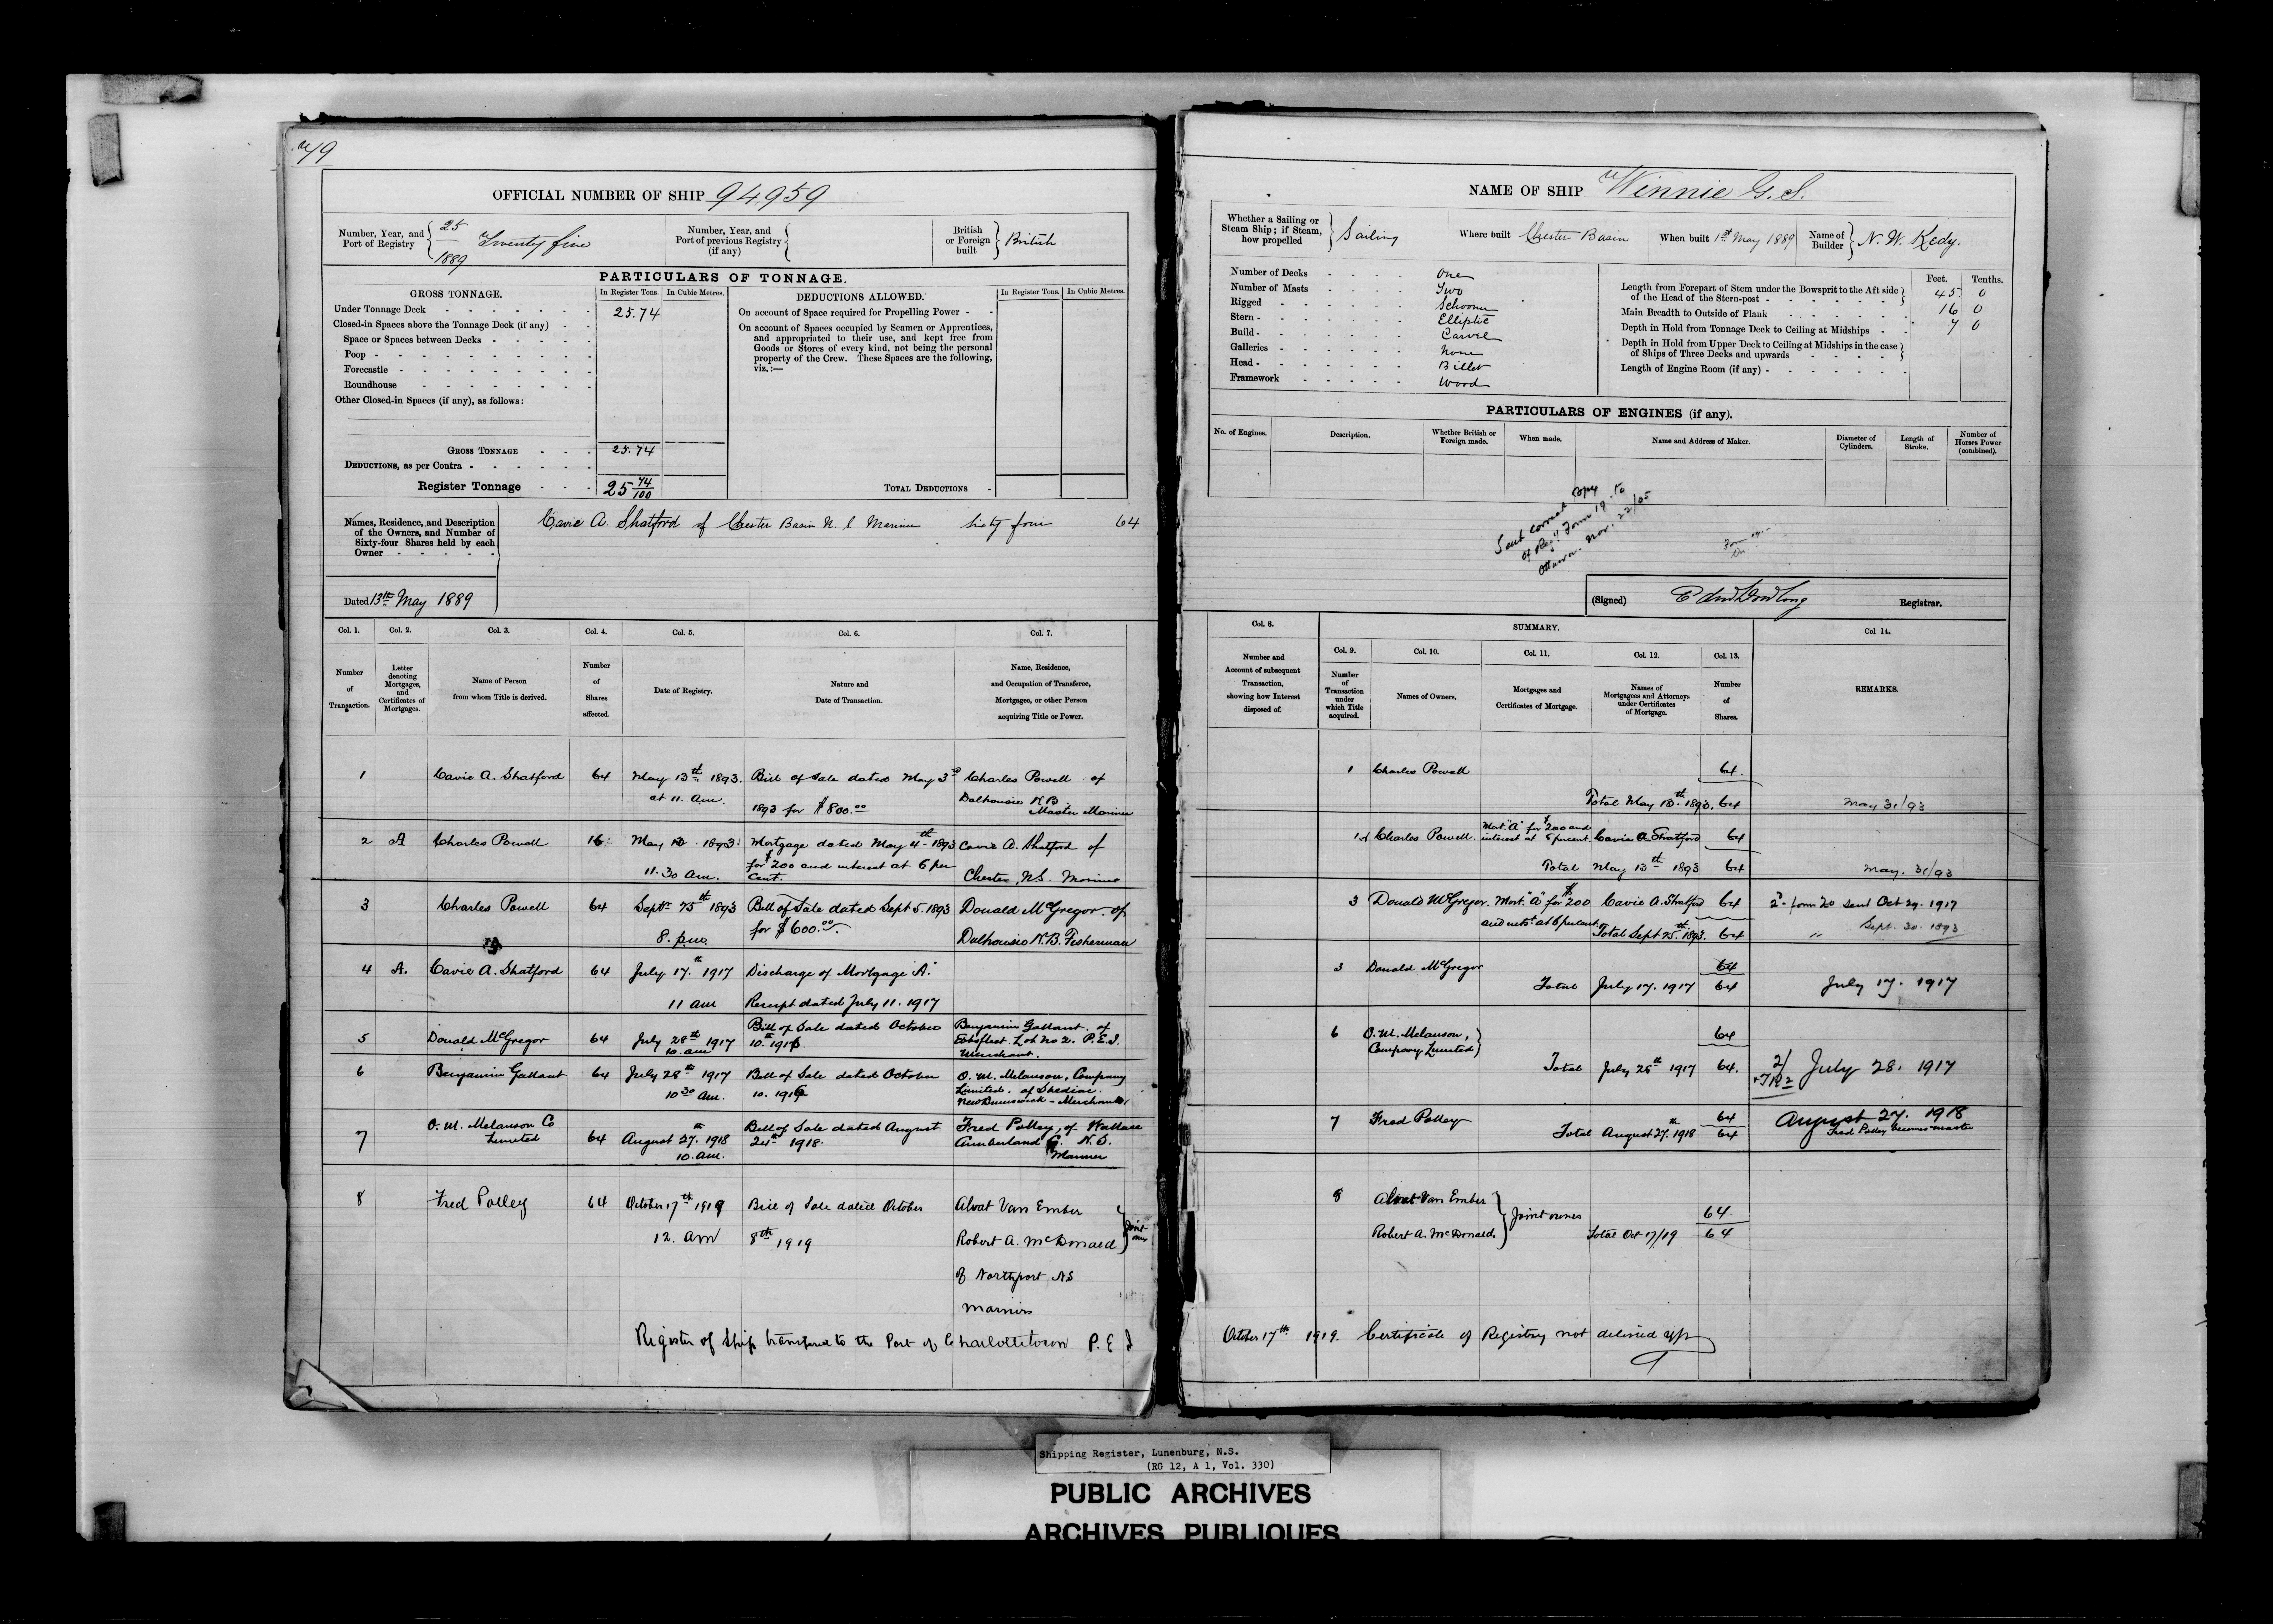 49
OFFICIAL NUMBER OF SHIP 94959
Number, Year, and Port of Registry
25
1889
Twenty five
Number, Year, and Port of previous Registry (if any)
British or Foreign built
British
PARTICULARS OF TONNAGE.
GROSS TONNAGE.
In Register Tons.
In Cubic Metres.
DEDUCTIONS ALLOWED.
In Register Tons.
In Cubic Metres.
Under Tonnage Deck 25.74
Closed-in Spaces above the Tonnage Deck (if any)
Space or Spaces between Decks
Poop
Forecastle
Roundhouse
Other Closed-in Spaces (if any), as follows:
On account of Space required for Propelling Power
On account of Spaces occupied by Seamen or Apprentices,
and appropriated to their use, and kept free from
Goods or Stores of every kind, not being the personal
property of the Crew. These Spaces are the following,
viz.:—
GROSS TONNAGE 25.74
DEDUCTIONS, as per Contra
Register Tonnage 25 74/100
TOTAL DEDUCTIONS
Names, Residence, and Description
of the Owners, and Number of
Sixty-four Shares held by each
Owner
Cavie A. Shatford of Chester Basin N. S Mariner Sixty four 64
Dated 13th May 1889
Col. 1. Col. 2. Col. 3. Col. 4. Col. 5. Col. 6. Col. 7.
Number of Transaction.
Letter denoting Mortgages, and Certificates of Mortgages.
Name of Person from whom Title is derived.
Number of Shares affected.
Date of Registry.
Nature and Date of Transaction.
Name, Residence, and Occupation of Transferee, Mortgagee, or other Person acquiring Title or Power.
1 Cavie A. Shatford 64 May 13th 1893. Bill of Sale dated May 3rd Charles Powell of
at 11. am. 1893 for $800.00 Dalhousie N.B. Master Mariner
2 A Charles Powell 16 May 13 1893 Mortgage dated May 4th 1893 Cavie A. Shatford of
11.30 am. for $200 and interest at 6 per cent. Chester, N.S. Mariner
3 Charles Powell 64 Septr 25th 1893 Bill of Sale dated Sept 5. 1893 Donald McGregor of
8. pm. for $600.00 Dalhousie N.B. Fisherman
4 A. Cavie A. Shatford 64 July 17th 1917 Discharge of Mortgage "A."
11 am Receipt dated July 11. 1917
5 Donald McGregor 64 July 28th 1917 10. am Bill of Sale dated October 10th 1916. Benjamin Gallant of
Lot No 2. P.E.I. Merchant.
6 Benjamin Gallant 64 July 28th 1917 Bill of Sale dated October O. M. Melanson, Company
10 30 am. 10. 1916 Limited. of Shediac. New Brunswick - Merchants
7 O. M. Melanson Co Limited 64 August 27th 1918 10. am. Bill of Sale dated August 24th 1918. Fred Polley, of Wallace
Cumberland Co. N.S. Mariner
8 Fred Polley 64 October 17th 1919 Bill of Sale dated October Alvat Van Ember
12. am 8th 1919 Robert A. McDonald } Joint owners
of Northport NS
Mariners
Register of Ship transferred to the Port of Charlottetown P. E I
NAME OF SHIP "Winnie G. S.
Whether a Sailing or Steam Ship; if Steam, how propelled
Sailing
Where built Chester Basin
When built 1st May 1889
Name of Builder N. W. Kedy.
Number of Decks One
Number of Masts Two
Rigged Schooner
Stern Elliptic
Build Carvel
Galleries None
Head Billet
Framework Wood
Feet. Tenths.
Length from Forepart of Stem under the Bowsprit to the Aft side of the Head of the Stern-post 45 0
Main Breadth to Outside of Plank 16 0
Depth in Hold from Tonnage Deck to Ceiling at Midships 7 0
Depth in Hold from Upper Deck to Ceiling at Midships in the case of Ships of Three Decks and upwards
Length of Engine Room (if any)
PARTICULARS OF ENGINES (if any).
No. of Engines.
Description.
Whether British or Foreign made.
When made.
Name and Address of Maker.
Diameter of Cylinders.
Length of Stroke.
Number of Horses Power (combined).
Sent correct copy
of Reg. Form 19 to
Ottawa. Nov. 22/05
(Signed) Edw Dowling Registrar.
Col. 8. SUMMARY. Col 14.
Col. 9. Col. 10. Col. 11. Col. 12. Col. 13.
Number and Account of subsequent Transaction, showing how Interest disposed of.
Number of Transaction under which Title acquired.
Names of Owners.
Mortgages and Certificates of Mortgage.
Names of Mortgagees and Attorneys under Certificates of Mortgage.
Number of Shares.
REMARKS.
1 Charles Powell 64.
Total May 13th 1893. 64 May 31/93
1 A Charles Powell. Mort. "A" for $200 and interest at 6 percent. Cavie A. Shatford 64
Total May 13th 1893 64 May. 31/93
3 Donald McGregor. Mort. "A" for $200 Cavie A. Shatford 64 2- form 20 sent Oct 29. 1917
and intst at 6 percent. Total Sept 25th 1893. 64 " Sept. 30. 1893
3 Donald McGregor 64
Total July 17. 1917 64 July 17. 1917
6 O. M. Melanson, Company Limited } 64
Total July 28th 1917 64. July 28. 1917
7 Fred Polley 64 August 27. 1918
Total August 27th 1918 64 Fred Polley becomes master
8 Alvat Van Ember
Robert A. McDonald } Joint owners 64
Total Oct 17/19 64
October 17th 1919. Certificate of Registry not delivered up
Shipping Register, Lunenburg, N.S.
(RG 12, A 1, Vol. 330)
PUBLIC ARCHIVES
ARCHIVES PUBLIQUES